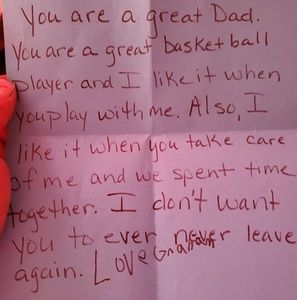 You are a great Dad.
You are a great basketball
player and I like it when
you play with me. Also, I
like it when you take care
of me and we spent time
together. I don't want
you to ever never leave
again. Love